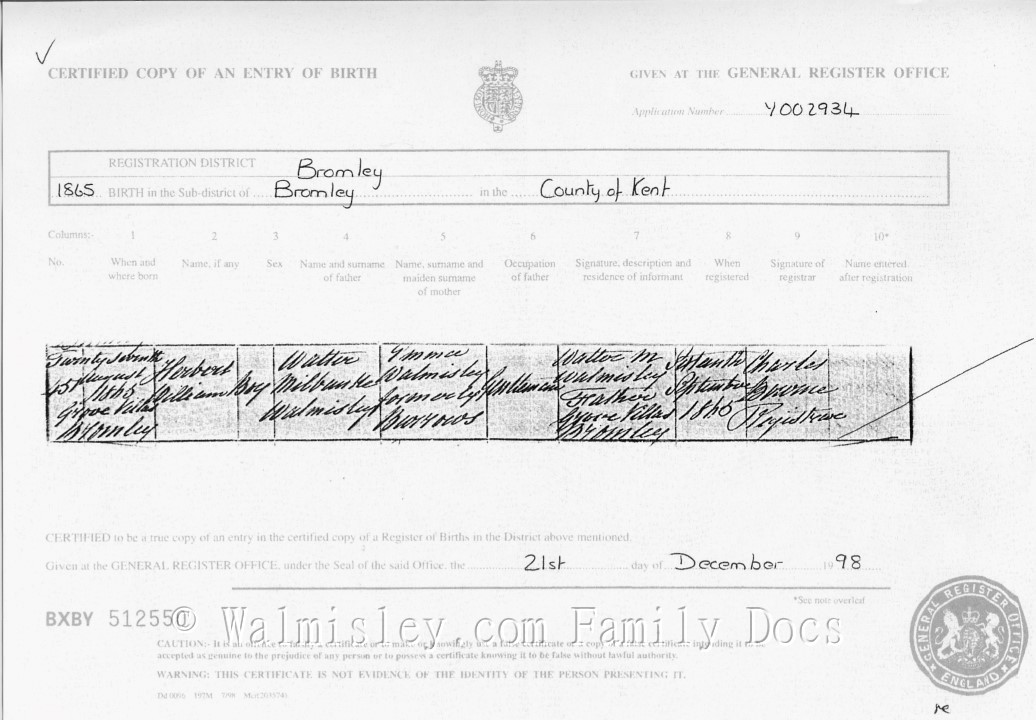 CERTIFIED COPY OF AN ENTRY OF BIRTH
GIVEN AT THE GENERAL REGISTER OFFICE
Application Number Y002934
REGISTRATION DISTRICT Bromley
1865 BIRTH in the Sub-district of Bromley in the County of Kent
Columns:- 1 2 3 4 5 6 7 8 9 10*
No. When and where born
Name, if any
Sex
Name and surname of father
Name, surname and maiden surname of mother
Occupation of father
Signature, description and residence of informant
When registered
Signature of registrar
Name entered after registration
Twenty seventh
August
1865
Grove Villas
Bromley
Herbert
William
Boy
Walter
Milbanke
Walmisley
Emma
Walmisley
formerly
Burrows
Gentleman
Walter M
Walmisley
Father
Grove Villas
Bromley
September
1865
Charles
Registrar
CERTIFIED to be a true copy of an entry in the certified copy of a Register of Births in the District above mentioned.
Given at the GENERAL REGISTER OFFICE, under the Seal of the said Office, the 21st day of December 1998
*See note overleaf
BXBY 512550
© Walmisley.com Family Docs
CAUTION:- It is an offence to falsify a certificate or to make or knowingly use a false certificate or a copy of a false certificate intending it to be
accepted as genuine to the prejudice of any person or to possess a certificate knowing it to be false without lawful authority.
WARNING: THIS CERTIFICATE IS NOT EVIDENCE OF THE IDENTITY OF THE PERSON PRESENTING IT.
GENERAL REGISTER OFFICE
ENGLAND